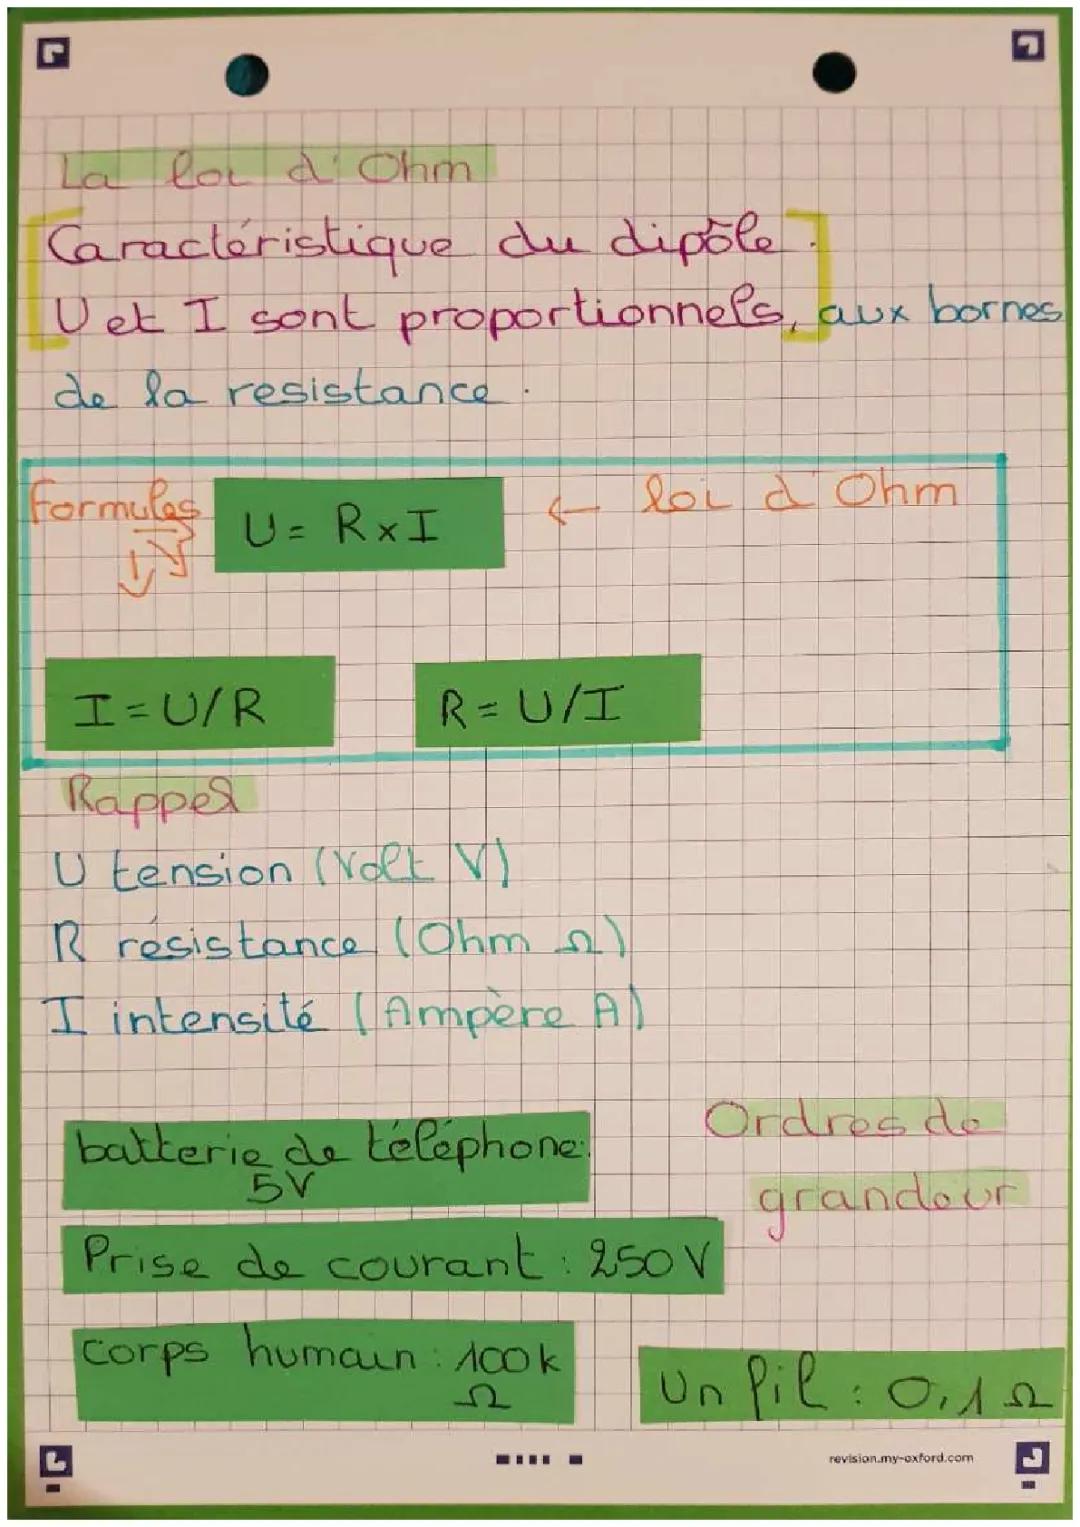 La loi d'Ohm
Caractéristique du dipôle.
U et I sont proportionnels, aux bornes
de la resistance.
Formules
U = R x I
← loi d'Ohm
I = U/R
R = U/I
Rappel
U tension (Volt V)
R résistance (Ohm Ω)
I intensité (Ampère A)
Ordres de
grandeur
batterie de téléphone:
5V
Prise de courant : 250V
corps humain : 100k
Ω
Un fil : 0,1 Ω
revision.my-oxford.com